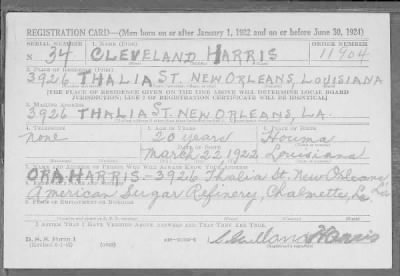 REGISTRATION CARD—(Men born on or after January 1, 1922 and on or before June 30, 1924)
SERIAL NUMBER 1. NAME (Print) ORDER NUMBER
N 34 CLEVELAND HARRIS 11904
2. PLACE OF RESIDENCE (Print)
3926 THALIA ST. NEW ORLEANS, LOUISIANA
[THE PLACE OF RESIDENCE GIVEN ON THE LINE ABOVE WILL DETERMINE LOCAL BOARD
JURISDICTION; LINE 2 OF REGISTRATION CERTIFICATE WILL BE IDENTICAL]
3. MAILING ADDRESS
3926 THALIA ST. NEW ORLEANS, LA.
4. TELEPHONE 5. AGE IN YEARS 6. PLACE OF BIRTH
none 20 years Houma
DATE OF BIRTH
March 22 1922 Louisiana
7. NAME AND ADDRESS OF PERSON WHO WILL ALWAYS KNOW YOUR ADDRESS
ORA HARRIS - 3926 Thalia St. New Orleans La
8. EMPLOYER'S NAME AND ADDRESS
American Sugar Refinery, Chalmette, La
9. PLACE OF EMPLOYMENT OR BUSINESS
I AFFIRM THAT I HAVE VERIFIED ABOVE ANSWERS AND THAT THEY ARE TRUE.
D. S. S. Form 1
Harris